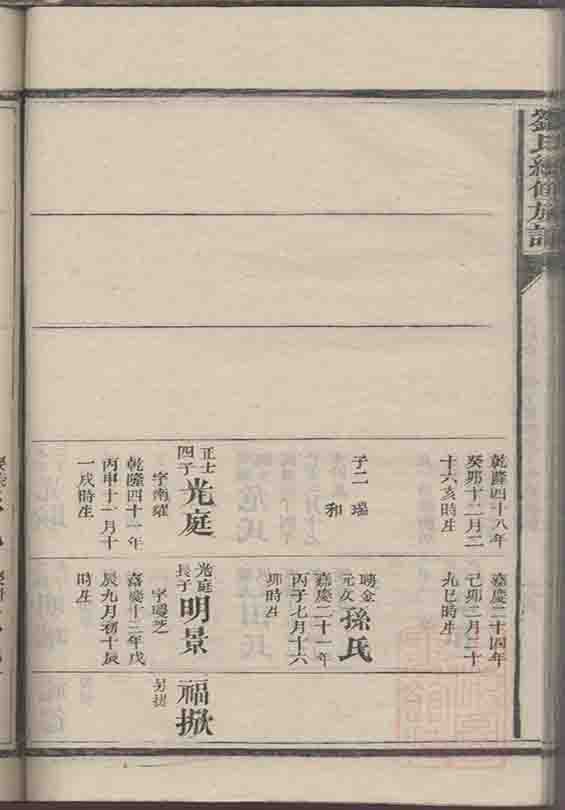 劉氏續修族譜
乾隆四十八年
癸卯十二月二
十六亥時生
子二 瑞
和
正士
四子
光庭
字南耀
乾隆四十一年
丙申十一月十
一戌時生
嘉慶二十四年
己卯二月二十
九巳時生
元女
孫氏
嘉慶二十一年
丙子七月十六
卯時生
光庭
長子
明景
嘉慶十三年戊
辰九月初十辰
時生
福掀
另提